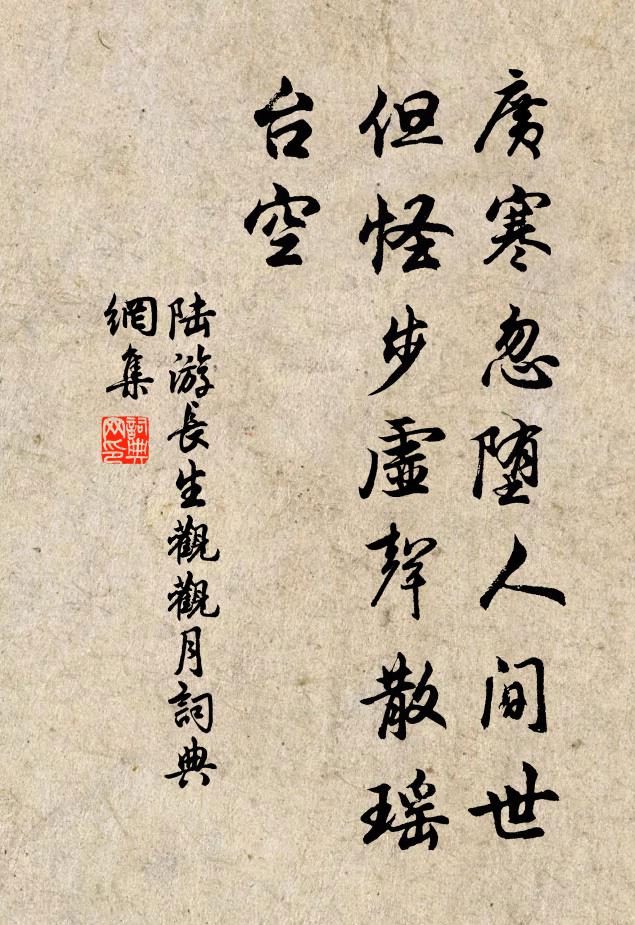 廣寒忽堕人间世
但怪步虛聲散瑶
台空
陆游長生觀觀月詞典
網集
詞典
网印